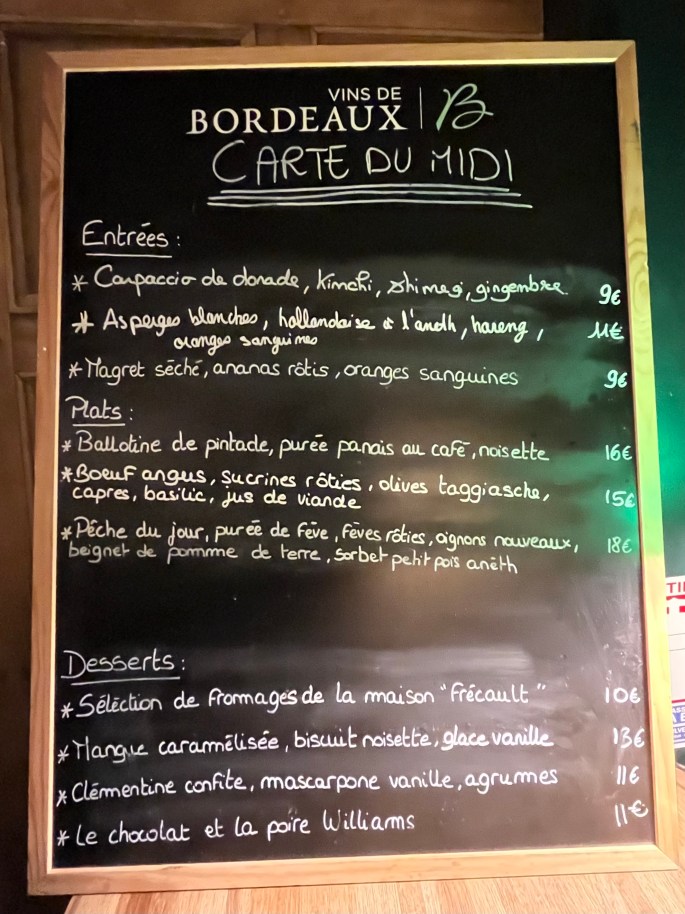 VINS DE
BORDEAUX B
CARTE DU MIDI
Entrées :
* Carpaccio de dorade, Kimchi, shimeji, gingembre 9€
* Asperges blanches, hollandaise à l'aneth, hareng, 11€
oranges sanguines
* Magret séché, ananas rôtis, oranges sanguines 9€
Plats :
* Ballotine de pintade, purée panais au café, noisette 16€
* Boeuf angus, sucrines rôties, olives taggiasche, 15€
capres, basilic, jus de viande
* Pêche du jour, purée de fève, fèves rôties, oignons nouveaux, 18€
beignet de pomme de terre, sorbet petit pois anëth
Desserts :
* Sélèction de fromages de la maison "Frécault" 10€
* Mangue caramélisée, biscuit noisette, glace vanille 13€
* Clémentine confite, mascarpone vanille, agrumes 11€
* Le chocolat et la poire Williams 11€